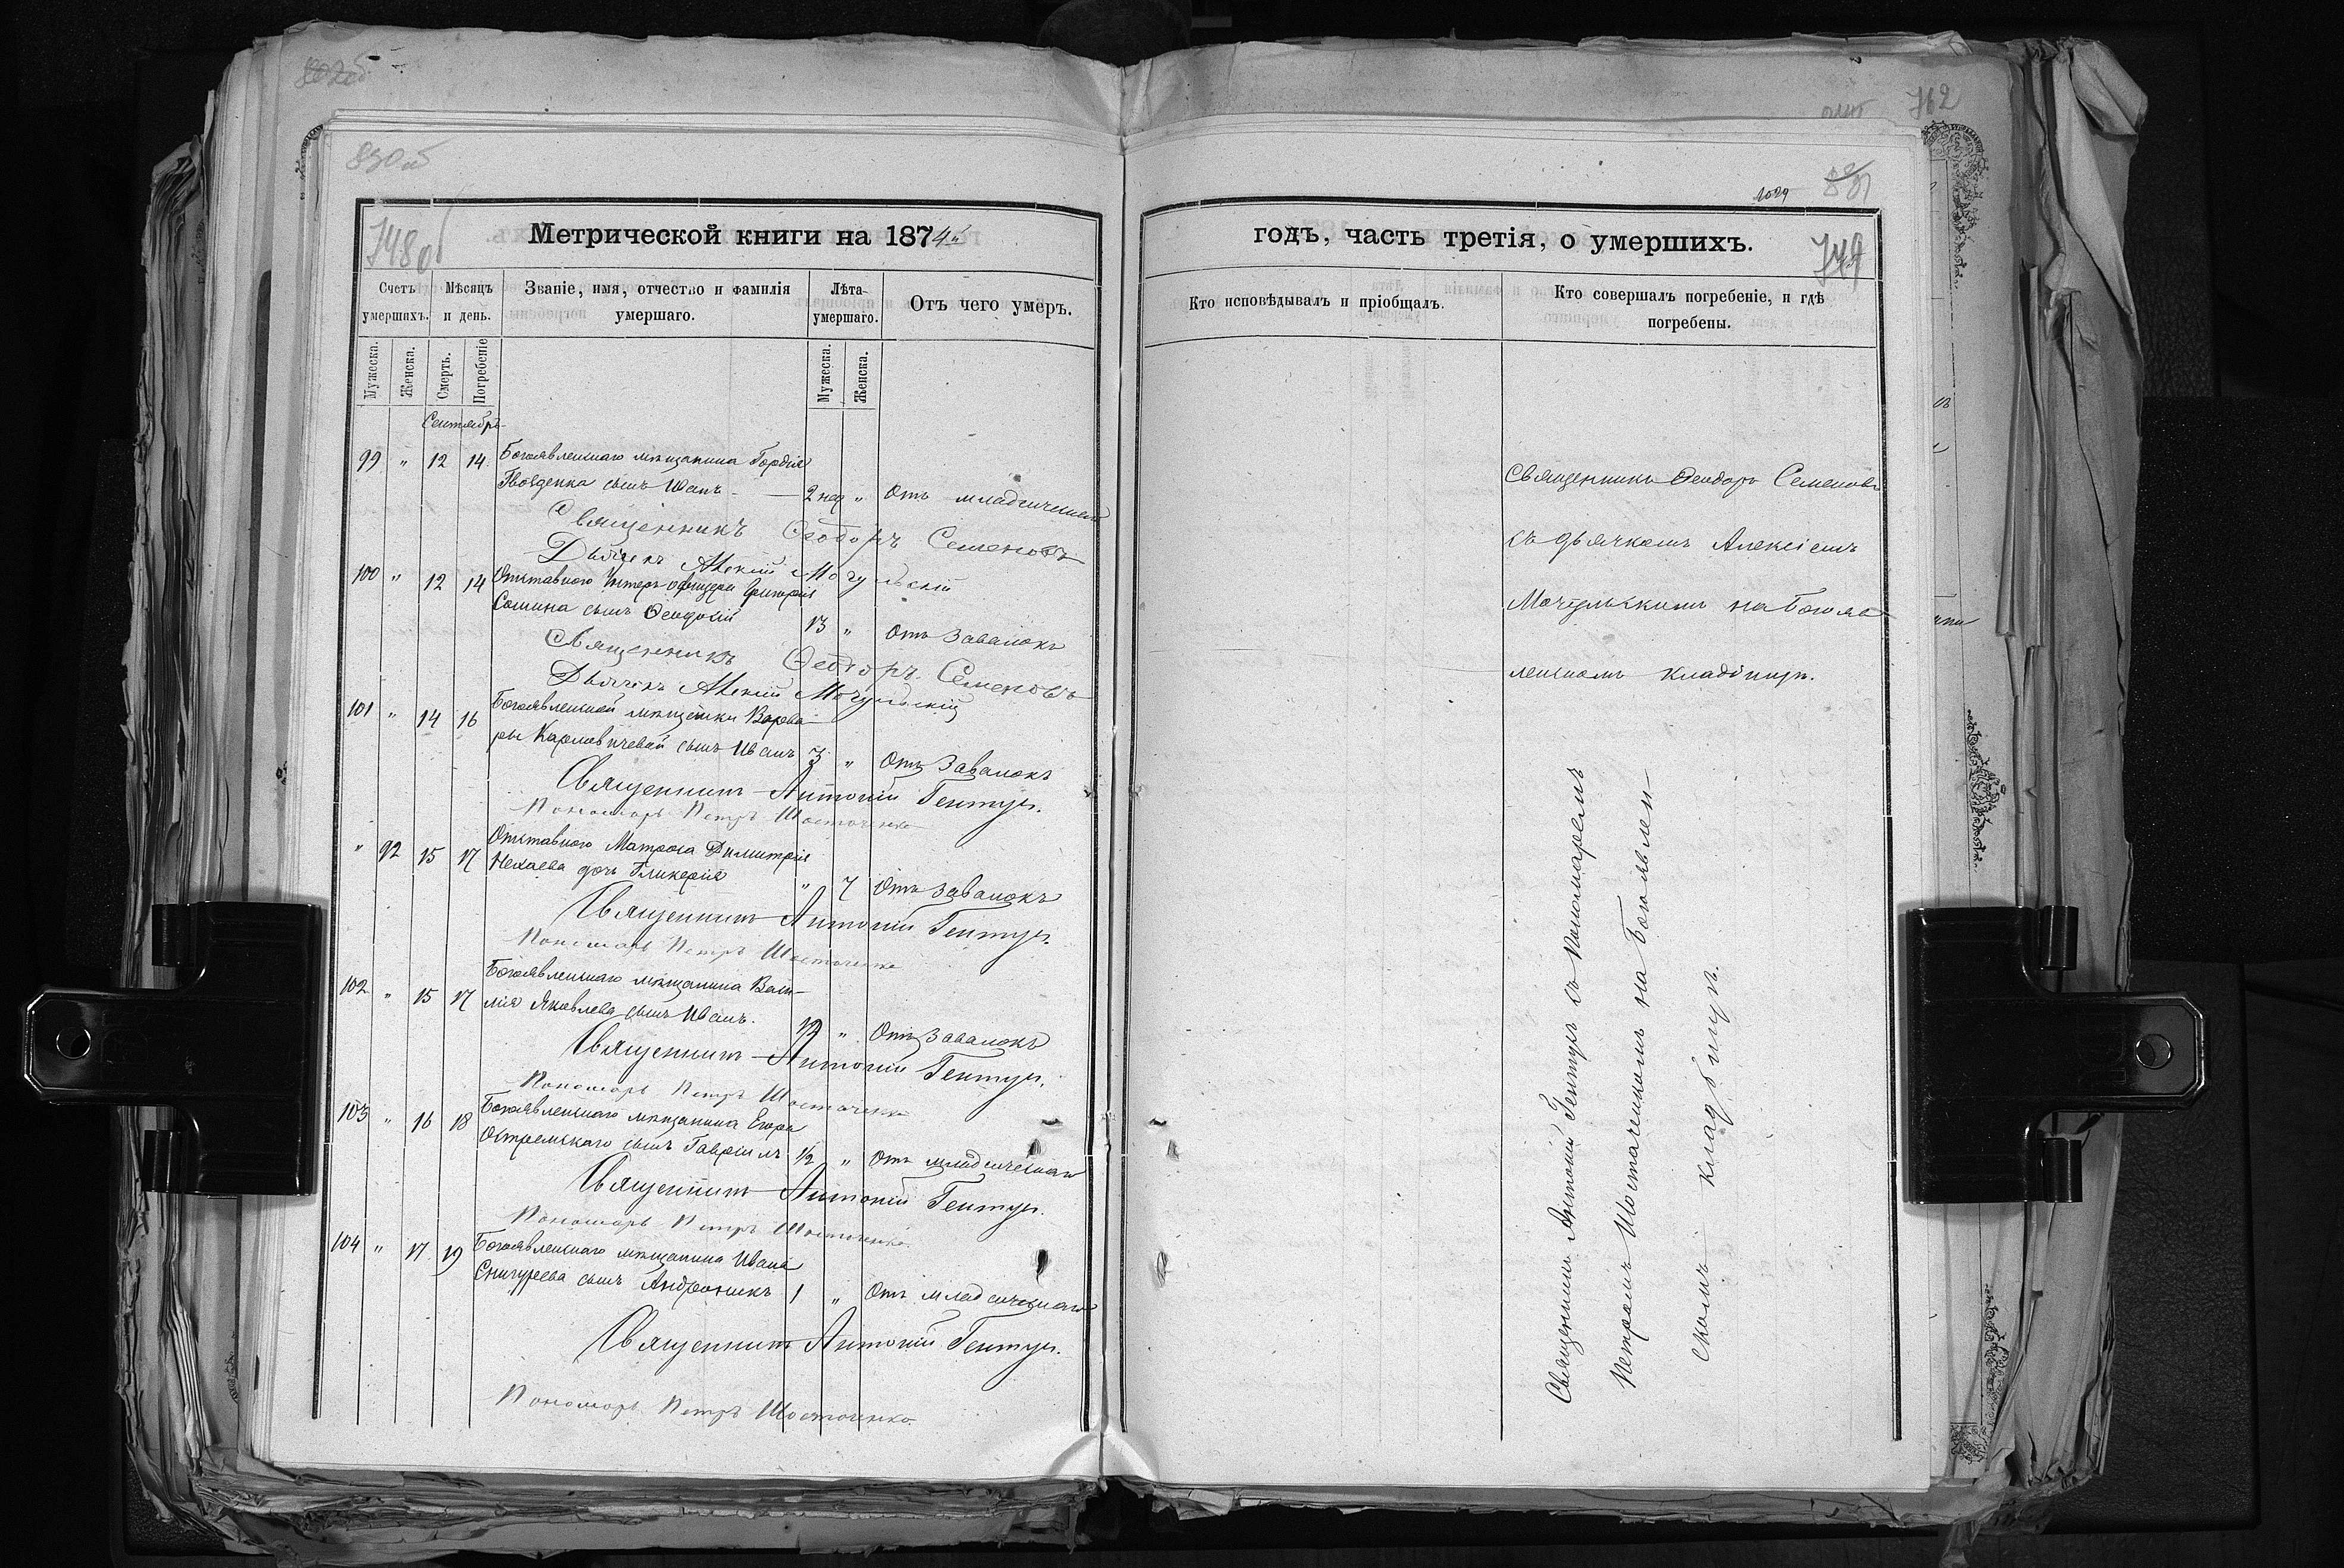 830об
748об
Метрической книги на 1874й
Счетъ умершихъ.
Мѣсяцъ и день.
Званіе, имя, отчество и фамилія умершаго.
Лѣта умершаго.
Отъ чего умеръ.
Мужеска.
Женска.
Смерть.
Погребеніе
Мужеска.
Женска.
Сентябрь
99 " 12 14 Богоявленскаго мѣщанина Гордія
Гвозденка сынъ Иванъ 2 нед " Отъ младенческой
Священникъ Ѳеодоръ Семеновъ
Дьячекъ Алексій Мочульскій
100 " 12 14 Отставного Унтеръ-офицера Григорія
Сомина сынъ Ѳеодосій 13 " Отъ завалокъ
Священникъ Ѳеодоръ Семеновъ
Дьячекъ Алексій Мочульскій
101 " 14 16 Богоявленской мѣщанки Варва-
ры Карловичевой сынъ Иванъ 3 " Отъ завалокъ
Священникъ Антоній Гентуш.
Пономарь Петръ Шостаченко
" 92 15 17 Отставного Матроса Димитрія
Нехаева дочь Гликерія " 7 Отъ завалокъ
Священникъ Антоній Гентуш.
Пономарь Петръ Шостаченко
102 " 15 17 Богоявленскаго мѣщанина Васи-
лія Яковлева сынъ Иванъ. 12 " Отъ завалокъ
Священникъ Антоній Гентуш.
Пономарь Петръ Шостаченко
103 " 16 18 Богоявленскаго мѣщанина Егора
Остремскаго сынъ Гавріилъ 1/2 " Отъ младенческой
Священникъ Антоній Гентуш.
Пономарь Петръ Шостаченко
104 " 17 19 Богоявленскаго мѣщанина Ивана
Снигурева сынъ Андроникъ 1 " Отъ младенческой
Священникъ Антоній Гентуш.
Пономарь Петръ Шостаченко
762
1029
831
749
годъ, часть третія, о умершихъ.
Кто исповѣдывалъ и пріобщалъ.
Кто совершалъ погребеніе, и гдѣ погребены.
Священникъ Ѳеодоръ Семеновъ
съ дьячкомъ Алексіемъ
Мочульскимъ на Богояв
ленскомъ кладбищѣ.
Священникъ Антоній Гентуш съ Пономаремъ
Петромъ Шостаченкомъ на Богоявлен-
скомъ кладбищѣ.